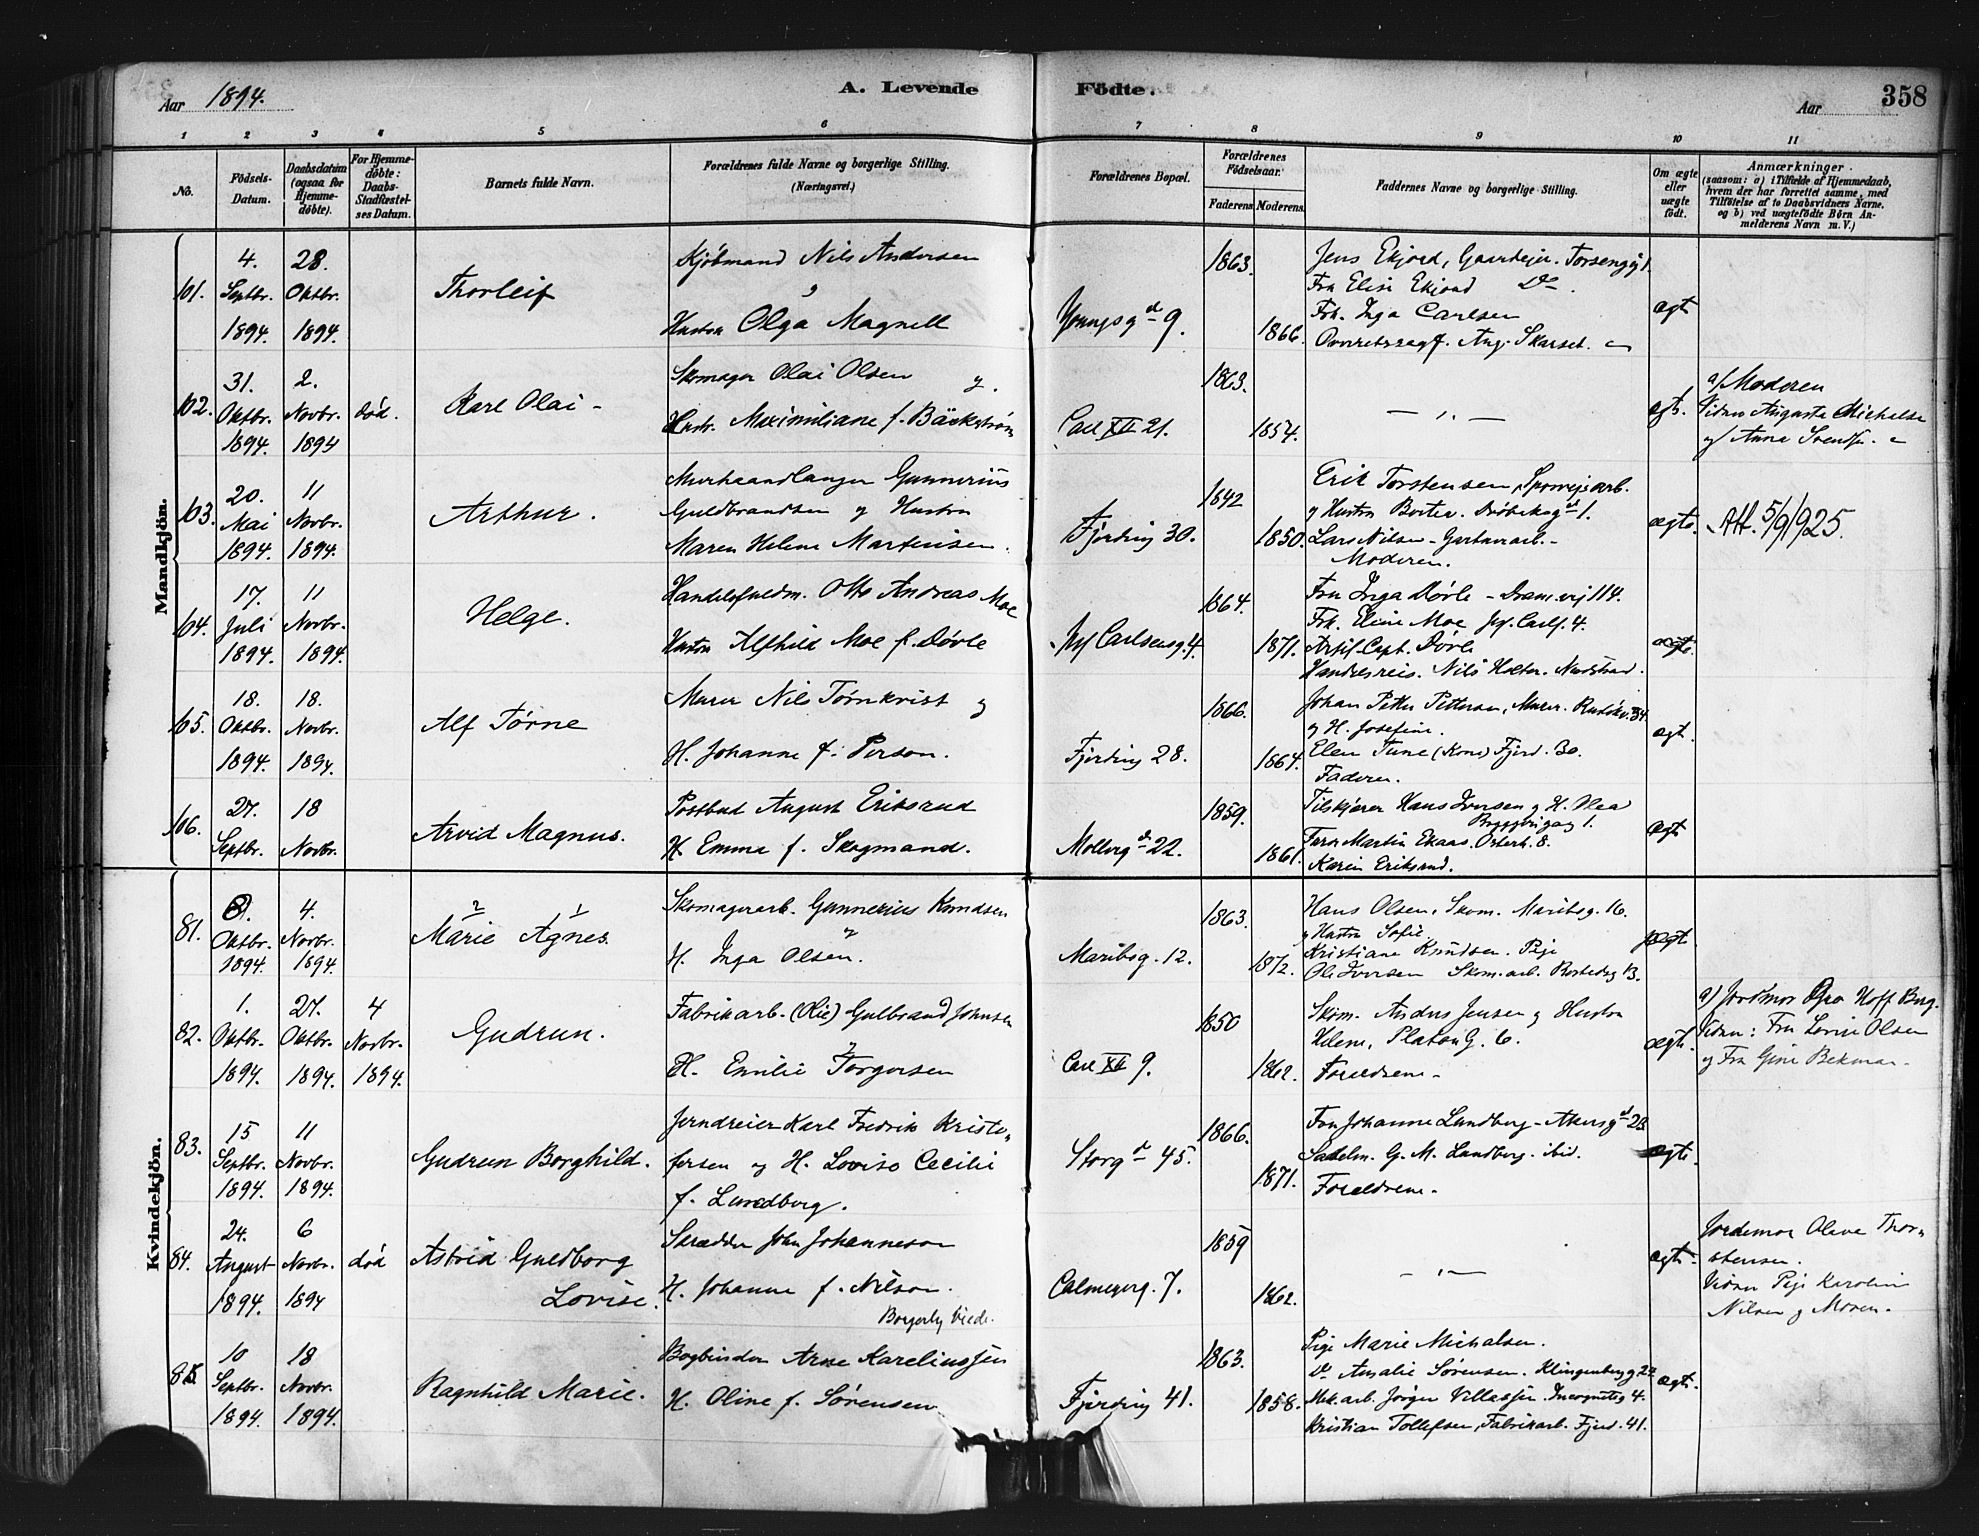 Aar 1894.
A. Levende
Födte.
Aar
358
1 2 3 4 5 6 7 8 9 10 11
No.
Födsels-Datum.
Daabsdatum (ogsaa for Hjemme-döbte).
For Hjemme-döbte: Daabs-Stadfæstel-ses Datum.
Barnets fulde Navn.
Forældrenes fulde Navne og borgerlige Stilling. (Næringsvei.)
Forældrenes Bopæl.
Forældrenes Födselsaar.
Faderens. Moderens.
Faddernes Navne og borgerlige Stilling.
Om ægte eller uægte födt.
Anmærkninger
(saasom: a) i Tilfælde af Hjemmedaab, hvem der har forrettet samme, med Tilföielse af to Daabsvidners Navne, og b) ved uægtefödte Börn An-melderens Navn m. V.)
Mandkjön.
101. 4. Septbr. 1894. 28. Oktbr. 1894.
Thorleif
Kjöbmand Nils Andersen
Hustru Olga Magnell
Youngsgd 9.
1863. 1866.
Jens Ekjord, Gaardejer. Torsengg 1.
Fru Elise Ekjord Do.
Frk. Inga Carlsen
Overretssagf. Aug. Skarset.
ægt
102. 31. Oktbr. 1894 2. Novbr. 1894 död.
Karl Olai
Skomager Olai Olsen
Hustr. Maximiliane f. Bäckström
Carl XII 21.
1863. 1854.
ægte.
a/ Moderen
Vidner Augusta Michalse
og Anna Svends.
103. 20. Mai 1894. 11 Novbr. 1894.
Arthur.
Murhaandlanger Gunnerius
Guldbrandsen og Hustru
Maren Helene Martinsen.
Fjörding 30.
1842 1850.
Erik Torstensen, Sporvejsarb.
og Hustru Dröbaksgd 1.
Lars Nilsen - Gartnerarb.
Moderen.
ægte.
Att. 5/9/925.
104. 17. Juli 1894. 11 Novbr. 1894.
Helge.
Otto Andreas Moe
Hustru Alfhild Moe f. Dövle
Carlsensg. 4.
1864. 1871.
Fru Inga Dövle - Dram.vej 114.
Frk. Eline Moe 4.
Artil. Capt. Dövle
Handelsreis. Nils Holter. Nordstrand.
ægte.
105. 18. Oktbr. 1894. 18. Novbr. 1894.
Alf Törne
Murer Nils Törnkvist og
H. Johanne f. Person.
Fjörding 28.
1866. 1864.
Johan Petter Pettersen, Murer. 34.
og H. Josefine.
Elen Tune (Kone) Fjerd. 30.
Faderen.
ægt.
106. 27. Septbr. 18 Novbr.
Arvid Magnus.
Postbud August Eriksrud
H. Emma f. Skogmand.
Mollergd 22.
1859. 1861.
Tilskjærer Hans Iversen og H. Olea
1.
Martin Ekaas. Osterh. 8.
Karin Eriksrud.
ægt
Kvindekjön.
81. 8. Oktbr. 1894. 4. Novbr. 1894.
2 1
Marie Agnes.
Skomagerarb. Gunnerius Knudsen
H. Inga Olsen.
Maribsg. 12.
1863. 1872.
Hans Olsen, Skom. Maribsg. 16.
og Hustru Sofie.
Kristiane Knudsen. Pige
Ole Iversen Skom.arb. Rostedsg 13.
ægt
82. 1. Oktbr. 1894. 27. Oktbr. 1894. 4 Novbr. 1894.
Gudrun.
Fabrikarb. Gulbrand Johnsen
H. Emilie Torgersen
Carl XII 9.
1850 1862.
Skom. Anders Jensen og Hustru
Helene, Platous G. 6.
Forældrene.
ægte.
a) Jordmor Gra Hoff Berg.
Vidner: Fru Lovise Olsen
og Fru Gina Bekman.
83. 15 Septbr. 1894. 11 Novbr. 1894.
Gudrun Borghild.
Jerndreier Karl Fredrik Kristo-
fersen og H. Loviso Cecilie
f. Lundberg.
Storgd 45.
1866. 1871.
Fru Johanne Lundberg - Akersgd 28
Sadelm. G. M. Lundberg. ibid.
Foreldrene.
ægte.
84. 24. August 1894. 6 Novbr. 1894 död
Astrid Guldborg
Lovise.
Skrædder John Johanneson
H. Johanne f. Nilson.
Borgerlig viede.
Calmeyerg. 7.
1859 1862.
ægte.
Jordemor Olava Thor-
stensen.
Vidner Pige Karolin
Nilsen og Moren.
85. 10 Septbr. 1894. 18 Novbr. 1894.
Ragnhild Marie.
Bogbinder Arne Kareliussen
H. Oline f. Sörensen
Fjörding 41.
1863. 1858.
Pige Marie Michalsen.
Do. Amalie Sörensen. Klingenbergg 27
Mek.arb. Jörgen Villassen. Incognitog 4.
Kristian Tollefsen, Fabrikarb. Fjerd. 41.
ægte.